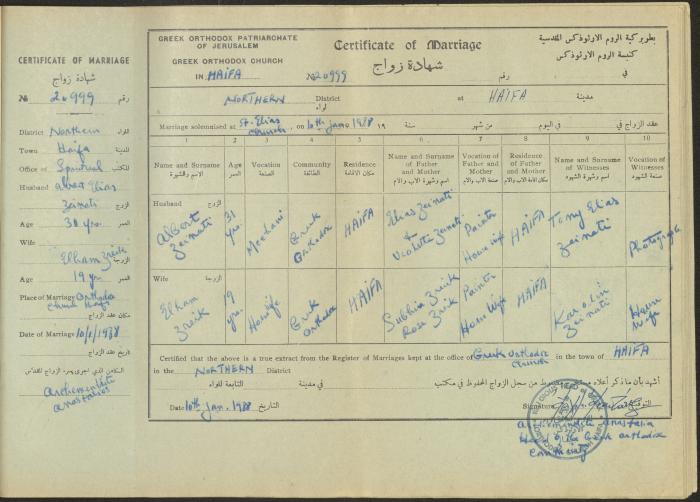 CERTIFICATE OF MARRIAGE
شهادة زواج
№ 20999 رقم
District Northern لواء
Town Haifa المدينة
Office of Spiritual للكتب
Husband Albert Elias
Zeinati الزوج
Age 30 yrs. العمر
Wife
Elham Zreik الزوجة
Age 19 yr. العمر
Place of Marriage Orthodox
Church Haifa
مكان عقد الزواج
Date of Marriage 10/1/1988
تاريخ عقد الزواج
Archimandrite
Anastasios
GREEK ORTHODOX PATRIARCHATE
OF JERUSALEM
GREEK ORTHODOX CHURCH
IN HAIFA
Certificate of Marriage
شهادة زواج
№ 20999 رقم
بطريركية الروم الارثوذكس المقدسية
كنيسة الروم الارثوذكس
في
NORTHERN District لواء
at HAIFA مدينة
Marriage solemnised at St. Elias Church, on 10th Jan. 1988 19 سنة من شهر في اليوم عقد الزواج في
1 2 3 4 5 6 7 8 9 10
Name and Surname الاسم والشهرة
Age العمر
Vocation الصنعة
Community الطائفة
Residence مكان الاقامة
Name and Surname of Father and Mother اسم وشهرة الاب والام
Vocation of Father and Mother صنعة الاب والام
Residence of Father and Mother مكان اقامة الاب والام
Name and Surname of Witnesses اسم وشهرة الشهود
Vocation of Witnesses صنعة الشهود
Husband الزوج
Albert Zeinati
31 yrs.
Mechanic
Greek Orthodox
HAIFA
Elias Zeinati & Violette Zeinati
Painter Housewife
HAIFA
Tony Elias Zeinati
Photograph
Wife الزوجة
Elham Zreik
19 yrs.
Housewife
Greek Orthodox
HAIFA
Subhia Zreik Rose Zreik
Painter Housewife
HAIFA
Karolin Zeinati
House Wife
Certified that the above is a true extract from the Register of Marriages kept at the office of Greek Orthodox Church in the town of HAIFA
in the NORTHERN District التابعة للواء في مدينة
Date 10th Jan. 1988 التاريخ
Signature التوقيع
Archimandrite Anastasios
Head of the Greek Orthodox
Community